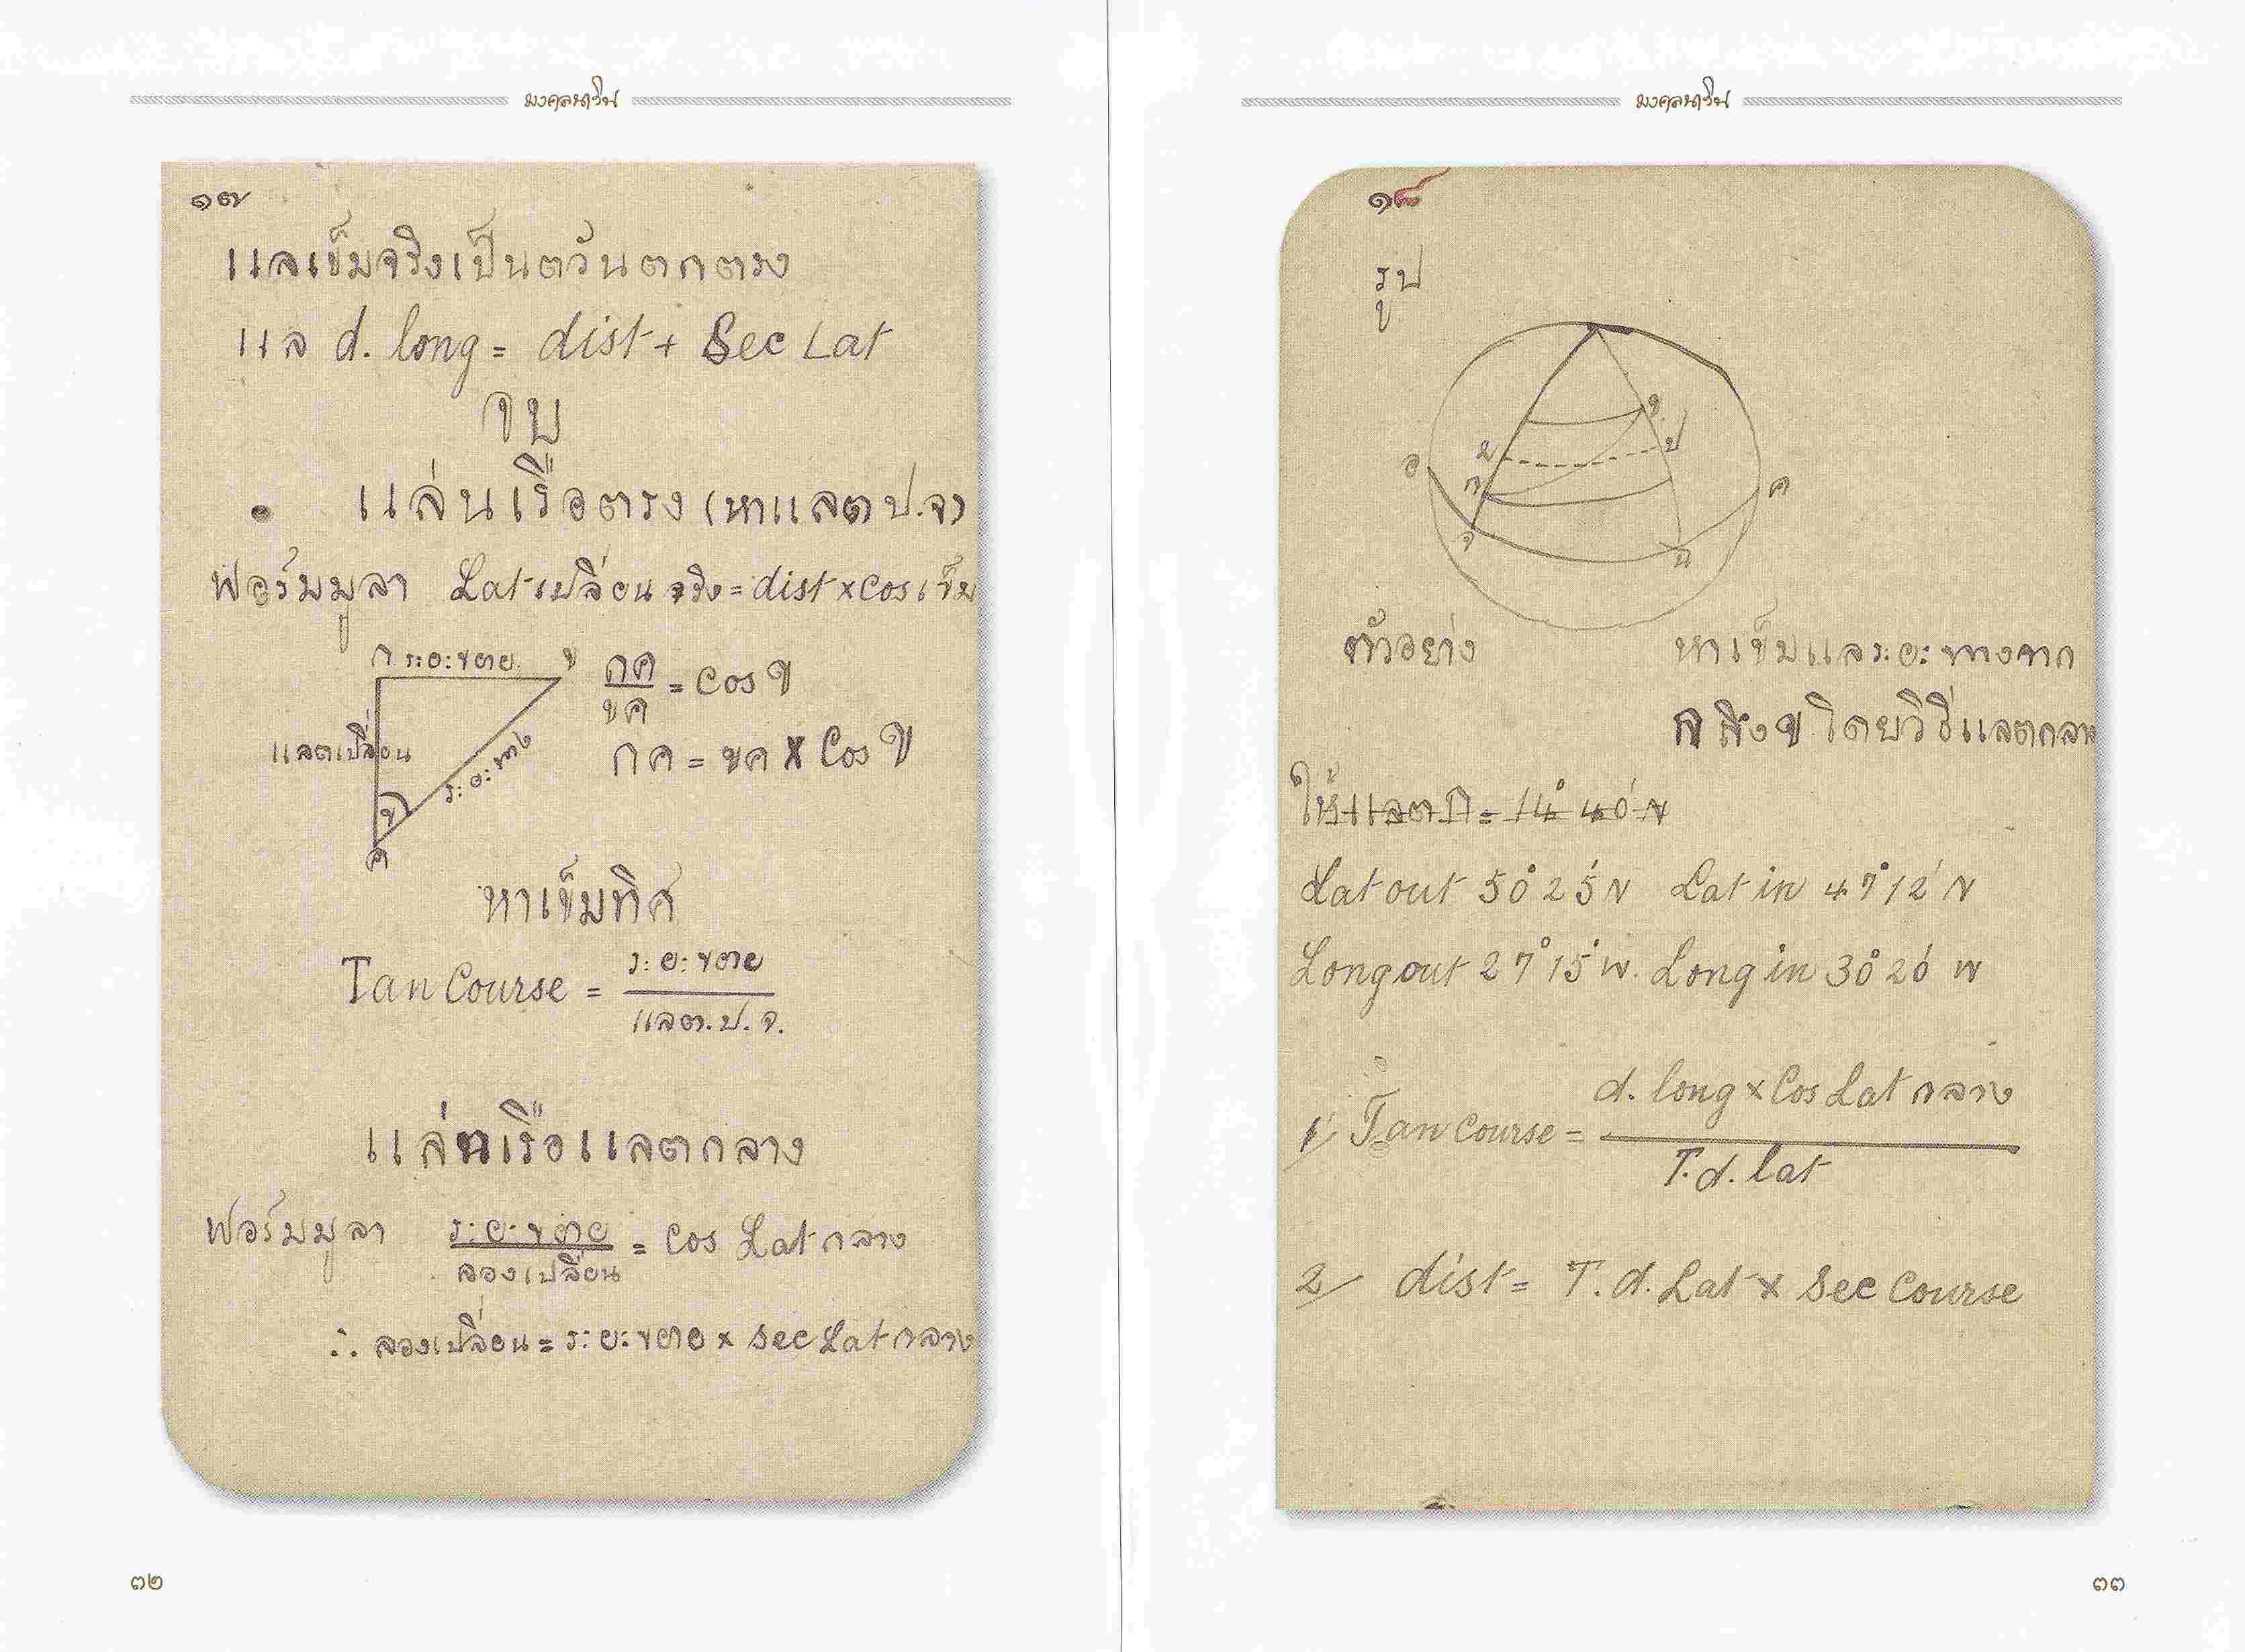 มงคลนาวิน
๑๗
แลเข็มจริงเป็นตวันตกตรง
แล d. long = dist + Sec Lat
จบ
แล่นเรือตรง (หาแลต ป.จ)
ฟอร์มมูลา Lat เปลี่ยนจริง = dist × Cos เข็ม
ก ระยะขยาย ข
กค
ขค
= Cos ข
แลตเปลี่ยน
ระยะทาง
กค = ขค × Cos ข
ข
ค
หาเข็มทิศ
Tan Course =
ระยะขยาย
แลต.ป.จ.
แล่นเรือแลตกลาง
ฟอร์มมูลา
ระยะขยาย
ลองเปลี่ยน
= Cos Lat กลาง
∴ ลองเปลี่ยน = ระยะขยาย × Sec Lat กลาง
๓๒
มงคลนาวิน
๑๘
รูป
ข
ป
ม
อ
ก
ค
จ
น
ตัวอย่าง หาเข็มแลระยะทางจาก
ก ถึง ข โดยวิธีแลตกลาง
ให้แลต ก = 14° 40' N
Lat out 50° 25' N Lat in 47° 12' N
Long out 27° 15' W. Long in 30° 20' W
1/ Tan Course =
d. long × Cos Lat กลาง
T. d. lat
2/ dist = T. d. Lat × Sec Course
๓๓